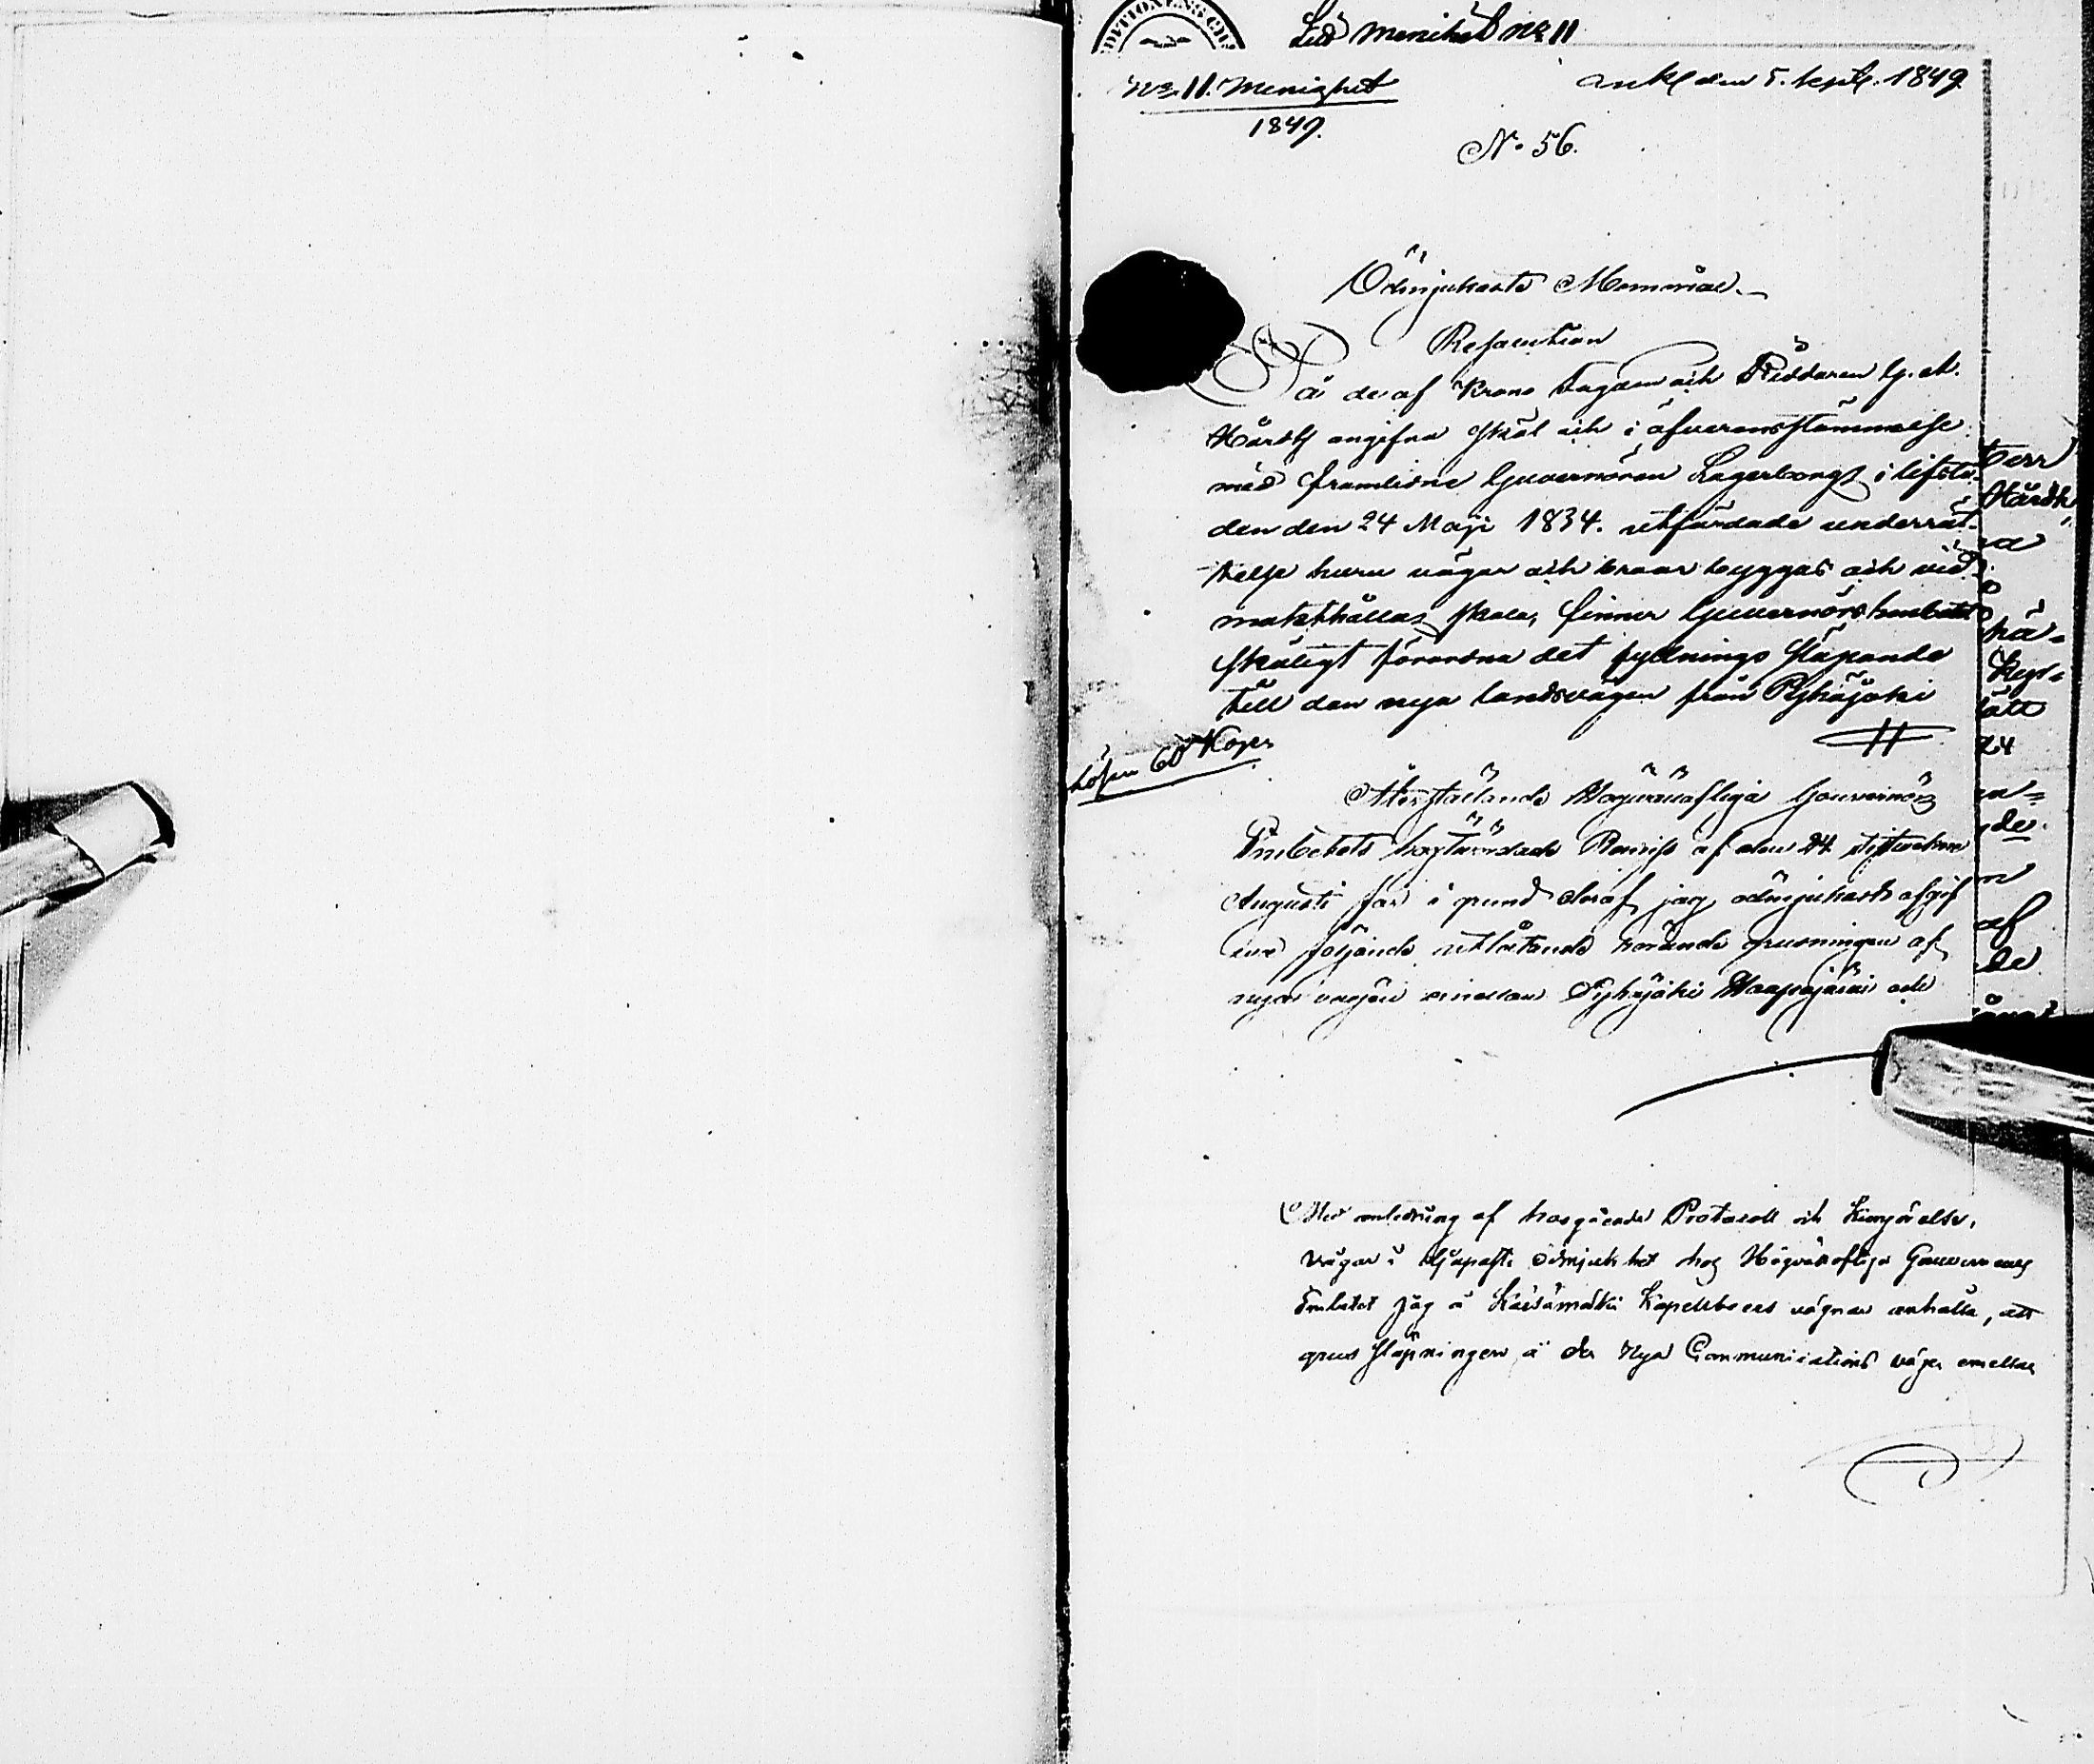 Litt menihet No 11
No 11. Menighet
1849.
ank den 5. Sept. 1849
No 56.
Ödmjukaste Memorial.
Resolution
På de af Krono Fogden och Riddaren G. A.
Hårdh angifna skäl och i öfverensstämmelse
med framlidne Guvernören Lagerborgs i lifsti-
den den 24 Maji 1834. utfärdade underrät-
telse huru vägar och broar byggas och vid
makthållas skola, finner Guvernörs Embetet
skäligt förordna det fyllnings släpande
till den nya landsvägen från Pyhäjoki
Lösen 60 Kop.
Återställande Högvälofliga Gouvernörs
Embetets högtärade Remiss af den 24 sistvekne
Augusti får i grund deraf jag ödmjukast afgif
va följande utlåtande rörande grusningen af
nya vägen emellan Pyhäjoki Haapajärvi och
Med anledning af föregående Protocoll och
vågar i djupaste ödmjukhet hos Högvälofliga Gouverneurs
Embetet jag å Kärsämäki Kapellboers vägnar anhålla, att
grus släpningen å den nya Communications vägen emellan
Herr
Hårdh
24
af
de